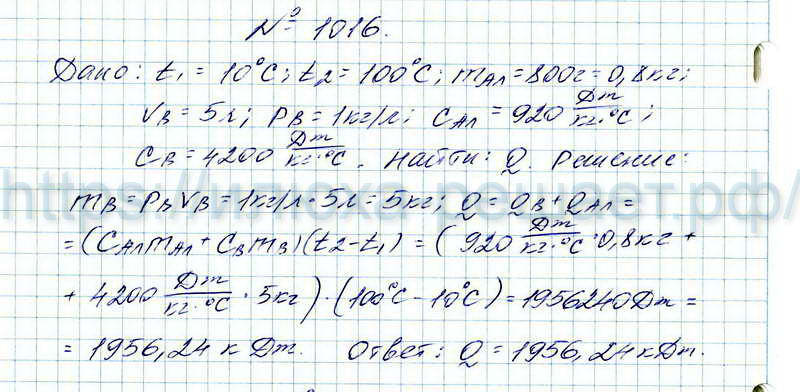 № 1016.
Дано: t₁ = 10°C; t₂ = 100°C; mАл = 800г = 0,8кг;
VВ = 5л; ρВ = 1кг/л; cАл = 920 Дж/кг·°C;
cВ = 4200 Дж/кг·°C. Найти: Q. Решение:
mВ = ρВVВ = 1кг/л · 5л = 5кг; Q = QВ + QАл =
= (cАлmАл + cВmВ)(t₂ - t₁) = (920 Дж/кг·°C · 0,8кг +
+ 4200 Дж/кг·°C · 5кг) · (100°C - 10°C) = 1956240Дж =
= 1956,24 кДж. Ответ: Q = 1956,24кДж.